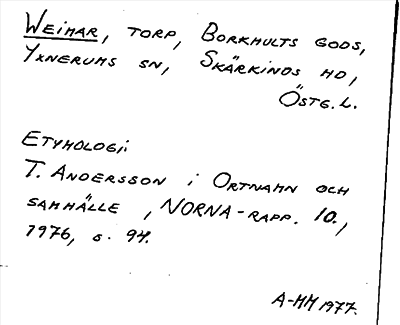 WEIMAR, TORP, BORKHULTS GODS,
YXNERUMS SN, SKÄRKINDS HD,
ÖSTG. L.
ETYMOLOGI:
T. ANDERSSON i ORTNAMN OCH
SAMHÄLLE, NORNA-RAPP. 10.,
1976, s. 94.
A-MM 1977.